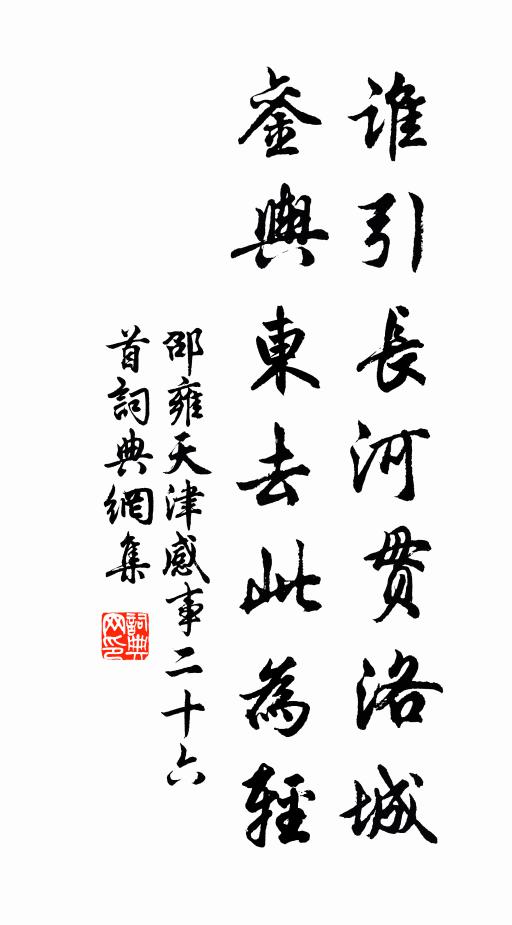 誰引長河貫洛城
鑾輿東去此為輕
邵雍天津感事二十六
首詞典網集
詞典
网印